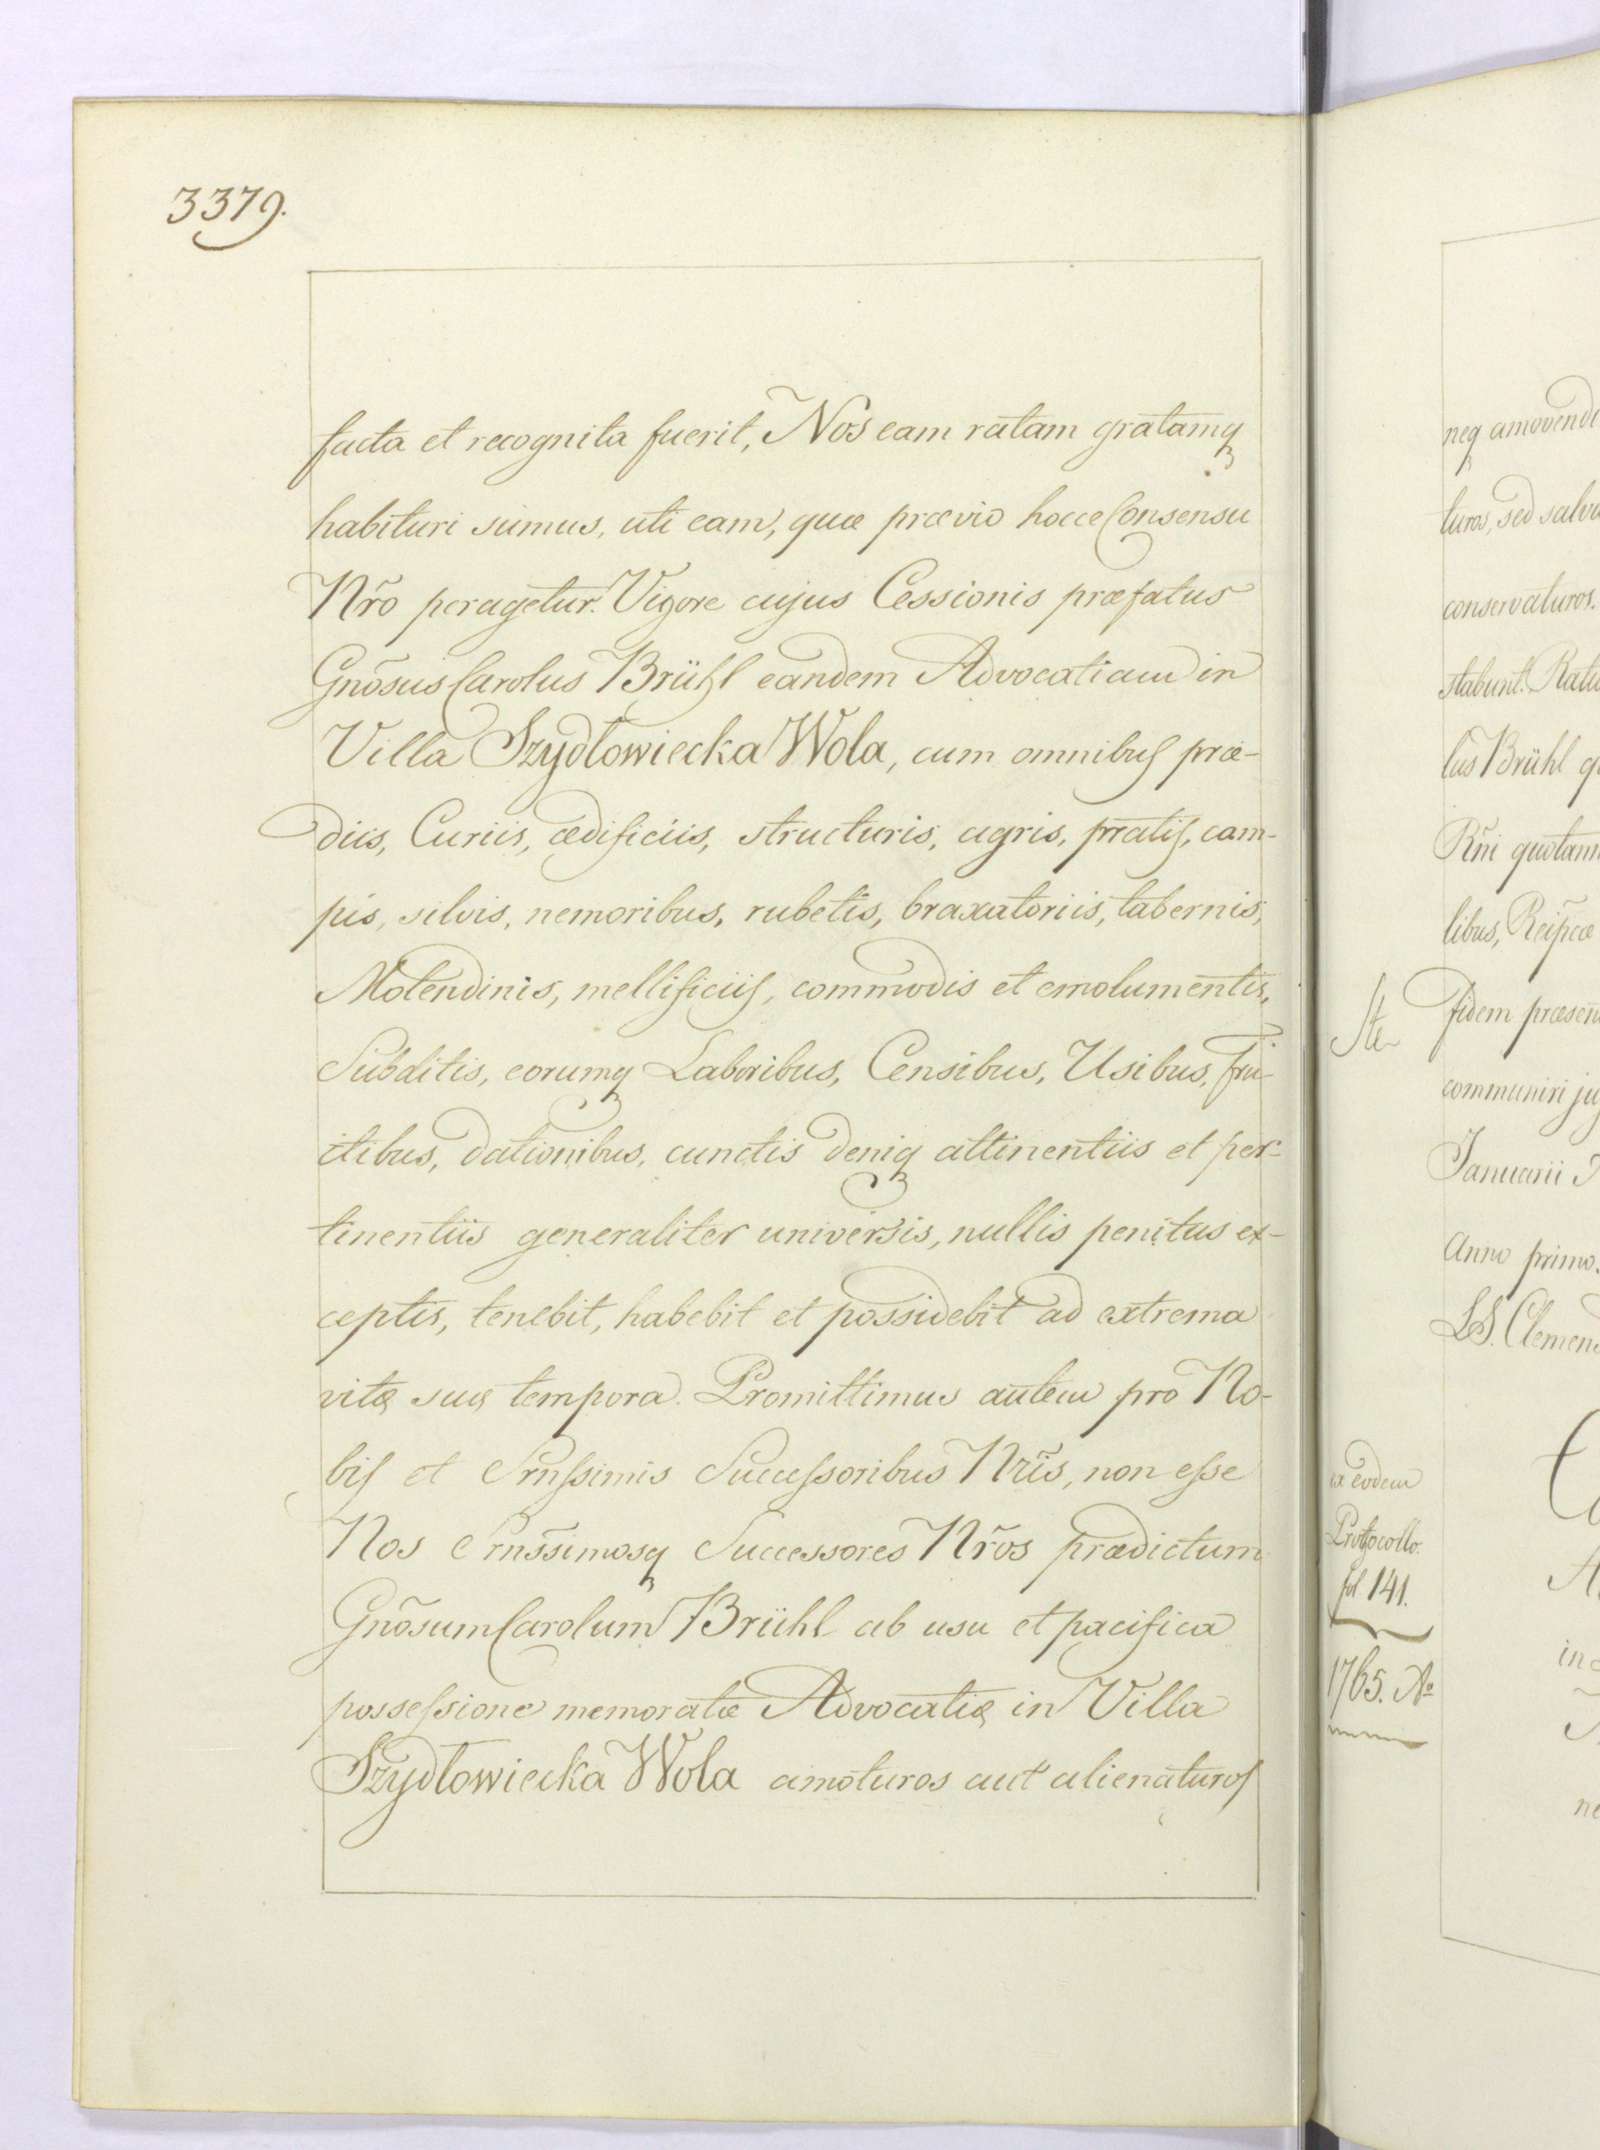 3379.
facta et recognita fuerit, Nos eam ratam gratamq
habituri sumus, uti eam, quæ prævio hocce Consensu
Nr̃o peragetur. Vigore cujus Cessionis præfatus
Gnõsus Carolus Brühl eandem Advocatiam in
Villa Szydłowiecka Wola, cum omnibus præ-
diis, Curiis, ædificiis, structuris, agris, pratis, cam-
pis, silvis, nemoribus, rubetis, braxatoriis, tabernis,
Molendinis, mellificiis, commodis et emolumentis,
Subditis, eorumq Laboribus, Censibus, Usibus, fru-
ctibus, dationibus, cunctis deniq attinentiis et per-
tinentiis generaliter universis, nullis penitus ex-
ceptis, tenebit, habebit et possidebit ad extrema
vitę suę tempora. Promittimus autem pro No-
bis et Srñssimis Successoribus Nr̃is, non esse
Nos Srñssimosq Successores Nr̃os prædictum
Gnõsum Carolum Brühl ab usu et pacifica
possessione memoratæ Advocatię in Villa
Szydłowiecka Wola amoturos aut alienaturos
neq amovendi
turos, sed salvu
conservaturos.
stabunt. Ratu
lus Brühl q
Rñi quotann
libus, Reipcæ
fidem præsen
communiri ju
Januarii
Anno primo.
LS. Clemens
ex eodem
Protocollo.
fol 141.
1765. Aº
in
ne